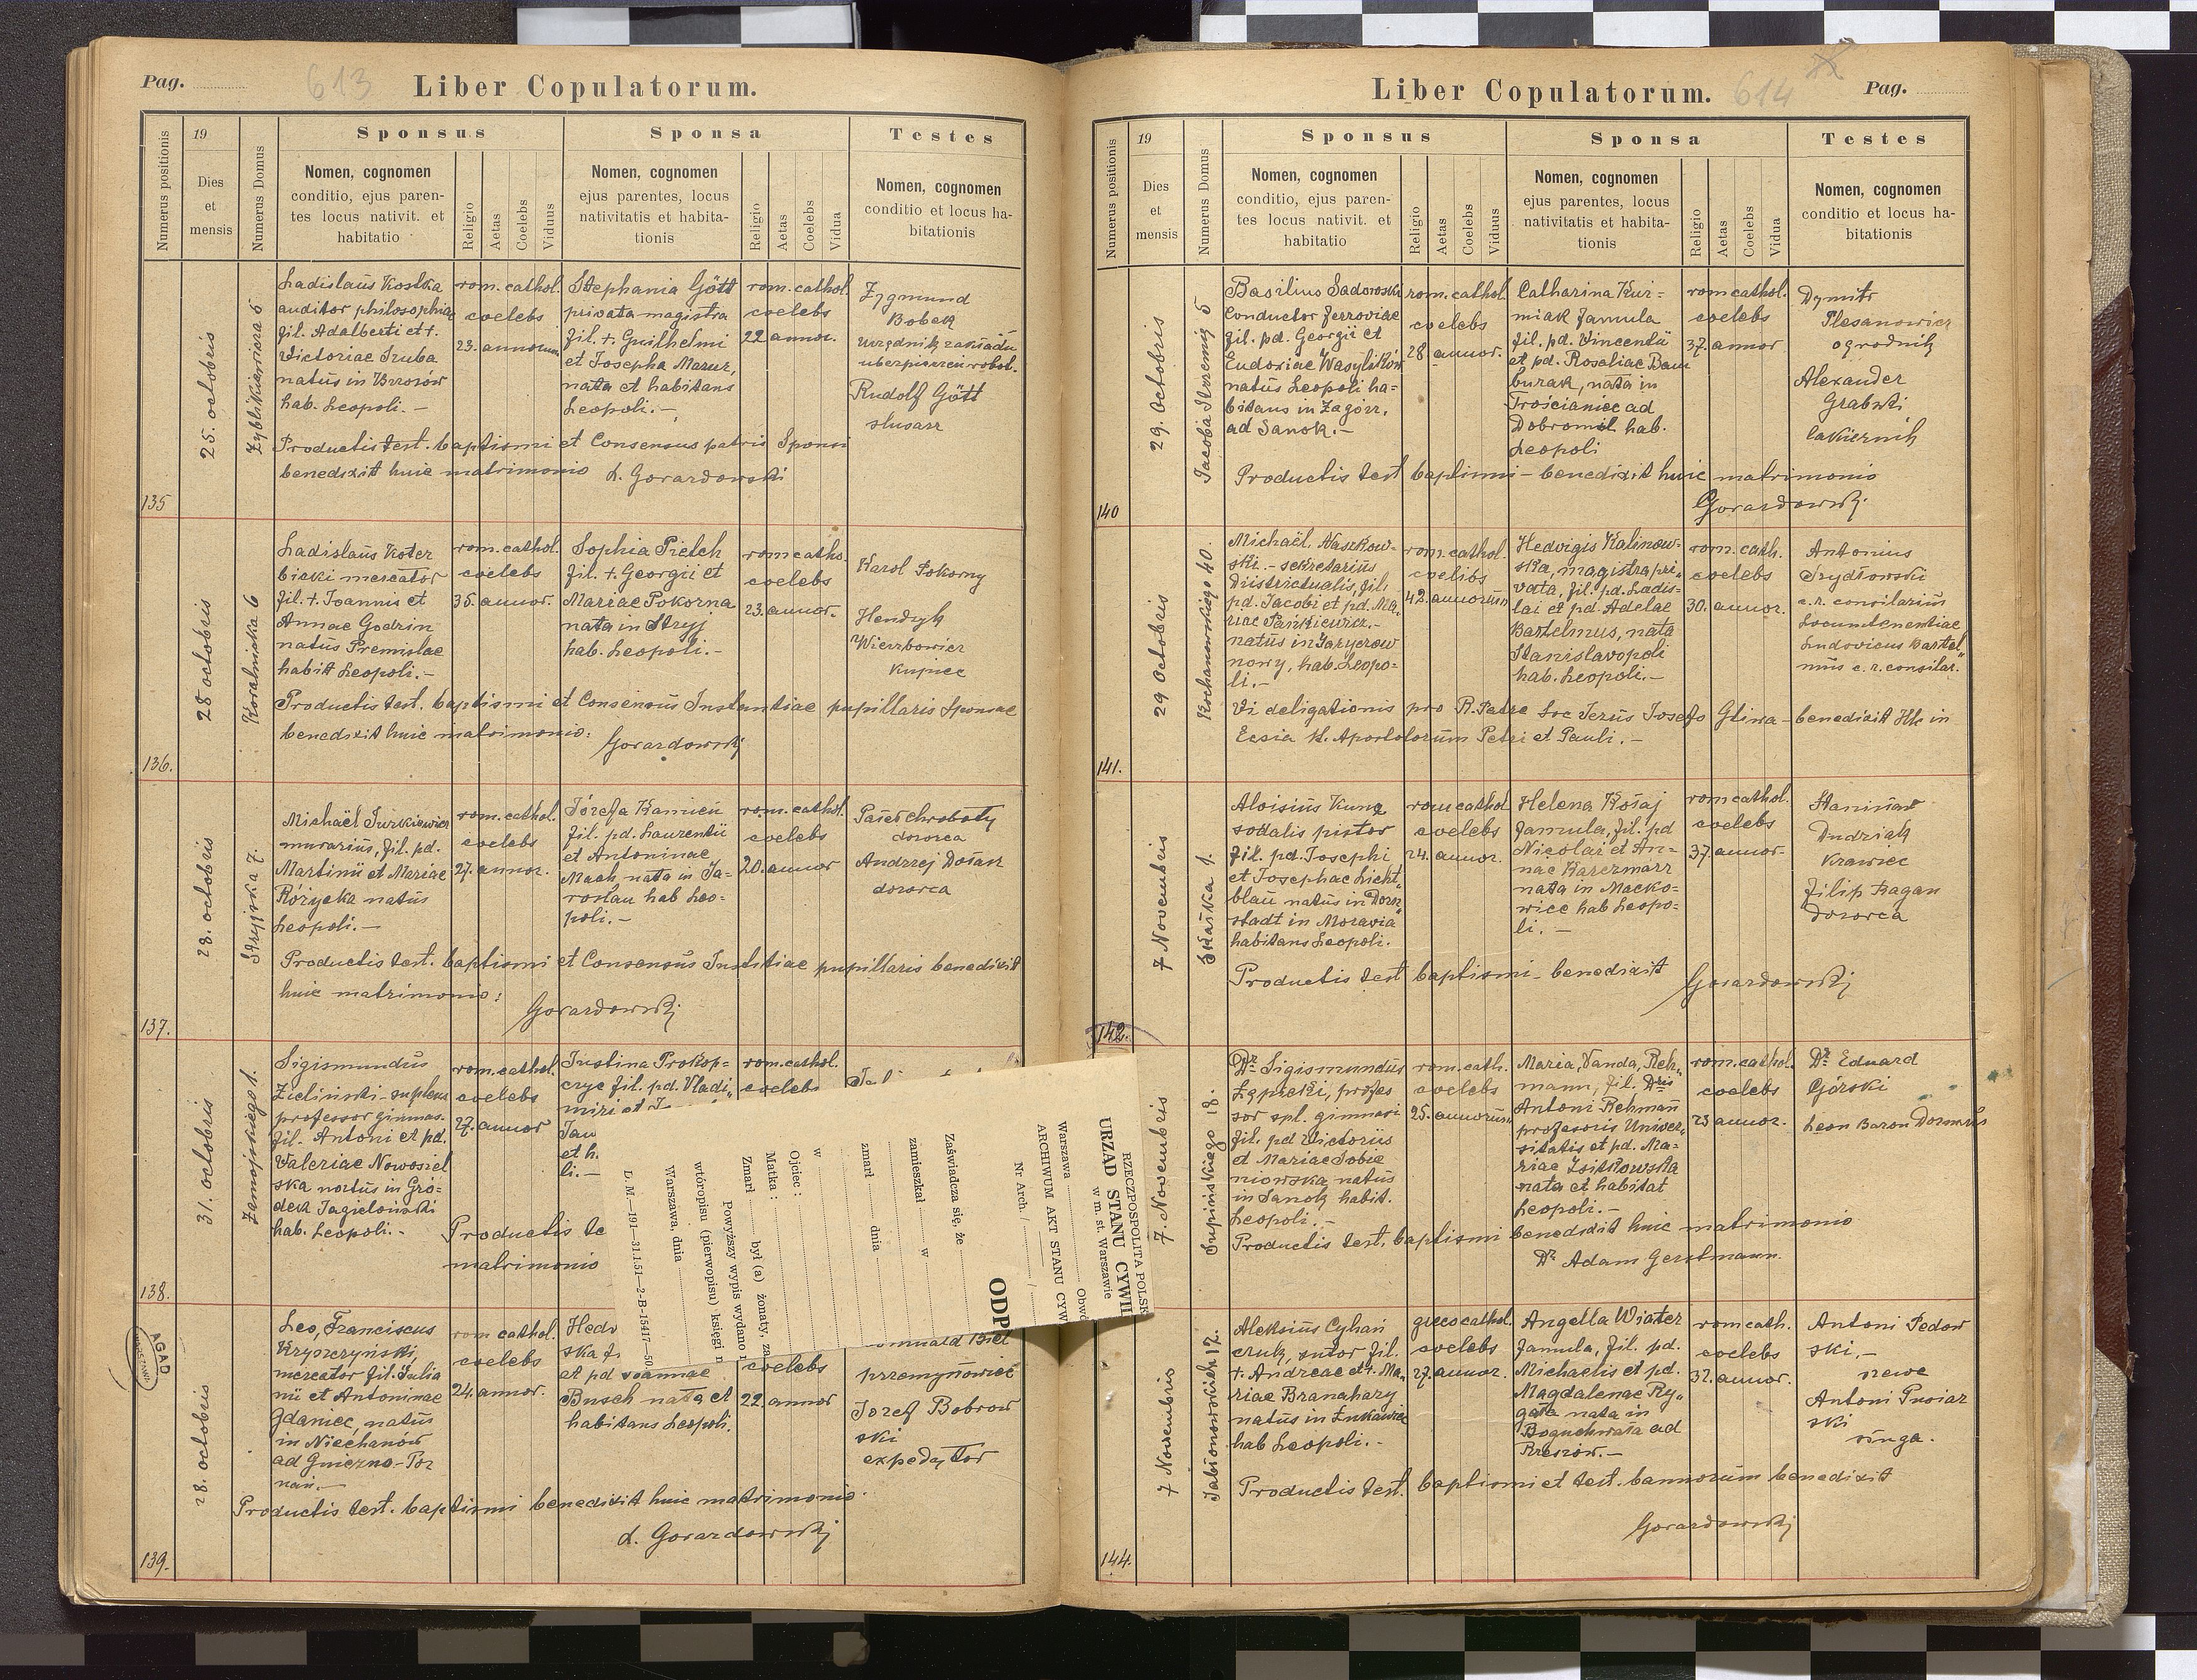 Pag.
613
Liber Copulatorum.
Numerus positionis
19
Dies
et
mensis
Numerus Domus
Sponsus
Nomen, cognomen
conditio, ejus paren-
tes locus nativit. et
habitatio
Religio
Aetas
Coelebs
Viduus
Sponsa
Nomen, cognomen
ejus parentes, locus
nativitatis et habita-
tionis
Religio
Aetas
Coelebs
Vidua
Testes
Nomen, cognomen
conditio et locus ha-
bitationis
135
25. octobris
Zyblikiewicza 5
Ladislaus Kostka
auditor philosophiae
fil. Adalberti et +.
Victoriae Truba
natus in Brzozów
hab. Leopoli.-
rom. cathol.
coelebs
23. annorum
Stephania Gött
privata magistra
fil. +. Guilhelmi
et Josepha Mazur,
nata et habitans
Leopoli.-
rom. cathol.
coelebs
22 annor.
Zygmund
Bobek
urzędnik zakładu
ubezpieczeń robot.
Rudolf Gött
slusarz
Productis test. baptismi et Consensus patris Sponsi
benedixit huic matrimonio L. Gorazdowski
136.
28 octobris
Koralnicka 6
Ladislaus Koter
bicki mercator
fil. +. Joannis et
Annae Godzin
natus Premislae
habit Leopoli.-
rom. cathol.
coelebs
35. annor.
Sophia Pietch
fil. +. Georgii et
Mariae Pokorna
nata in Stryj
hab. Leopoli.-
rom. catho.
coelebs
23. annor.
Karol Pokorny
Hendryk
Wierzbowicz
Kupiec
Productis test. baptismi et Consensus Instantiae pupillaris Sponsae
benedixit huic matrimonio:
Gorazdowski
137.
28. octobris
Stryjska 7.
Michaël Jurkiewicz
murarius, fil. pd.
Martini et Mariae
Różycka natus
Leopoli.-
rom. cathol.
coelebs
27. annor.
Józefa Kamień
fil. pd. Laurentii
et Antoninae
Mach nata in Ja-
roslau hab Leo-
poli.-
rom. cathol.
coelebs
20. annor
Paweł Chrobaty
dozorca
Andrzej Dołarz
dozorca
Productis test. baptismi et Consensus Institiae pupillaris benedixit
huic matrimonio:
Gorazdowski
138.
31. octobris
Zamojskiego 1.
Sigismundus
Zielinski - suplens
professor gimnas.
fil. Antoni et pd.
Valeriae Nowosiel
ska natus in Gró-
dek Jagieloński
hab. Leopoli.-
rom. cathol.
coelebs
27. annor
Justina Prokop-
czyc fil. pd. Vladi„
miri et
et h.
li.-
rom. cathol.
coelebs
Productis te
matrimonio
139.
28. octobris
Leo, Franciscus
Kryszczyński,
mercator fil. Julia
nii et Antoninae
Gdaniec, natus
in Niechanów
ad Gniezno-Poz
nań.-
rom cathol.
coelebs
24. annor.
Hedv
ska f.
et pd Joannae
Busch nata et
habitans Leopoli.
coelebs
22. annor
przemysłowiec
Jozef Bobrow
ski
expedytor
Productis test. baptismi benedixit huic matrimonio.
L. Gorazdowski
AGAD
RZECZPOSPOLITA POLSK
URZĄD STANU CYWIL
w m. st. Warszawie
Warszawa
Obwó
ARCHIWUM AKT STANU CYW
Nr Arch. / /
ODP
Zaświadcza się, że
zamieszkał w
zmarł dnia
w
Ojciec :
Matka :
Zmarł był (a) żonaty, za
Powyższy wypis wydano
wtóropisu (pierwopisu) księgi
Warszawa, dnia
D. M.—191—31.1.51—2-B-15417—50.
Liber Copulatorum.
614
Pag.
Numerus positionis
19
Dies
et
mensis
Numerus Domus
Sponsus
Nomen, cognomen
conditio, ejus paren-
tes locus nativit. et
habitatio
Religio
Aetas
Coelebs
Viduus
Sponsa
Nomen, cognomen
ejus parentes, locus
nativitatis et habita-
tionis
Religio
Aetas
Coelebs
Vidua
Testes
Nomen, cognomen
conditio et locus ha-
bitationis
140
29. Octobris
Jacoba Strzemię 5
Basilius Sadowski
Conductor ferroviae
fil. pd. Georgii et
Eudoxiae Wasylików
natus Leopoli ha-
bitans in Zagórz,
ad Sanok.-
rom. cathol.
coelebs
28 annor.
Catharina Kur-
miak famula
fil. pd. Vincentii
et pd. Rosaliae Bam
burak, nata in
Trościaniec ad
Dobromil hab.
Leopoli
rom cathol.
coelebs
37. annor
Dymitr
Plesanowicz
ogrodnik
Alexander
Grabski
lakiernik
Productis test baptismi - benedixit huic matrimonio
Gorazdowski
141.
29 Octobris
Kochanowskiego 40.
Michaël Waszkow-
ski - sekretarius
Districtualis, fil.
pd. Jacobi et pd. Ma„
riae Pankiewicz.-
natus in Jaryczow
nowy, hab. Leopo-
li.-
rom. cathol.
coelibs
42. annorum
Hedvigis Kalinow-
ska, magistra pri„
vata, fil. pd. Ladis-
lai et pd. Adelae
Bartelmus, nata
Stanislavopoli
hab. Leopoli.-
rom. cath.
coelebs
30. annor.
Antonius
Szydłowski
c. r. consilarius
Locumtenentiae
Ludovicus Bartel„
mus c. r. consilar.
Vi deligationis pro R. Patre Soc Jezus Josefo Gliwa - benedixit Hlc in
Ecsia St. Apostolorum Petri et Pauli.-
142.
7 Novembris
Skałka 1.
Aloisius Kunz
sodalis pistor
fil. pd. Josephi
et Josephae Licht„
blau natus in Dorn„
stadt in Moravia
habitans Leopoli.
rom cathol
coelebs
24. annor.
Helena Kosaj
famula, fil. pd
Nicolai et An-
nae Kaczmarz
nata in Macko-
wice hab Leopo-
li.-
rom cathol.
coelebs
37. annor.
Stanisław
Dudziak
Krawiec
Filip Kagan
Dozorca
Productis test baptismi - benedixit Gorazdowski
7. Novembris
Supińskiego 18.
Dr. Sigismundus
Łępicki, profes
sor spl. gimnasi
fil. pd Victorius
et Mariae Sobie
niowska, natus
in Sanok habit.
Leopoli.-
rom. cath.
coelebs
25. annorum
Maria, Vanda, Reh„
mann, fil. Dris
Antoni Rehmann
profesoris Univer„
sitatis et pd. Ma-
riae Zsitkowska
nata et habitat
Leopoli.-
rom. cathol.
coelebs
23 annor.
Dr. Eduard
Górski
Leon Baron Dormus
Productis test. baptismi benedixit huic matrimonio
Dr. Adam Gerstmann.
144.
7 Novembris
Jabłonowskich 12.
Aleksius Cyhań
czuk, sutor fil.
+ Andreae et +. Ma„
riae Branahazy
natus in Łukawiec
hab Leopoli.-
greco cathol.
coelebs
27. annor.
Angella Wiater
famula, fil. pd.
Michaelis et pd.
Magdalenae Ry„
gała nata in
Boguchwała ad
Rzeszów.-
rom cath.
coelebs
32. annor.
Antoni Fedow
ski,-
szewc
Antoni Pusiar
ski
sługa.
Productis test. baptismi et test. bannorum benedixit
Gorazdowski